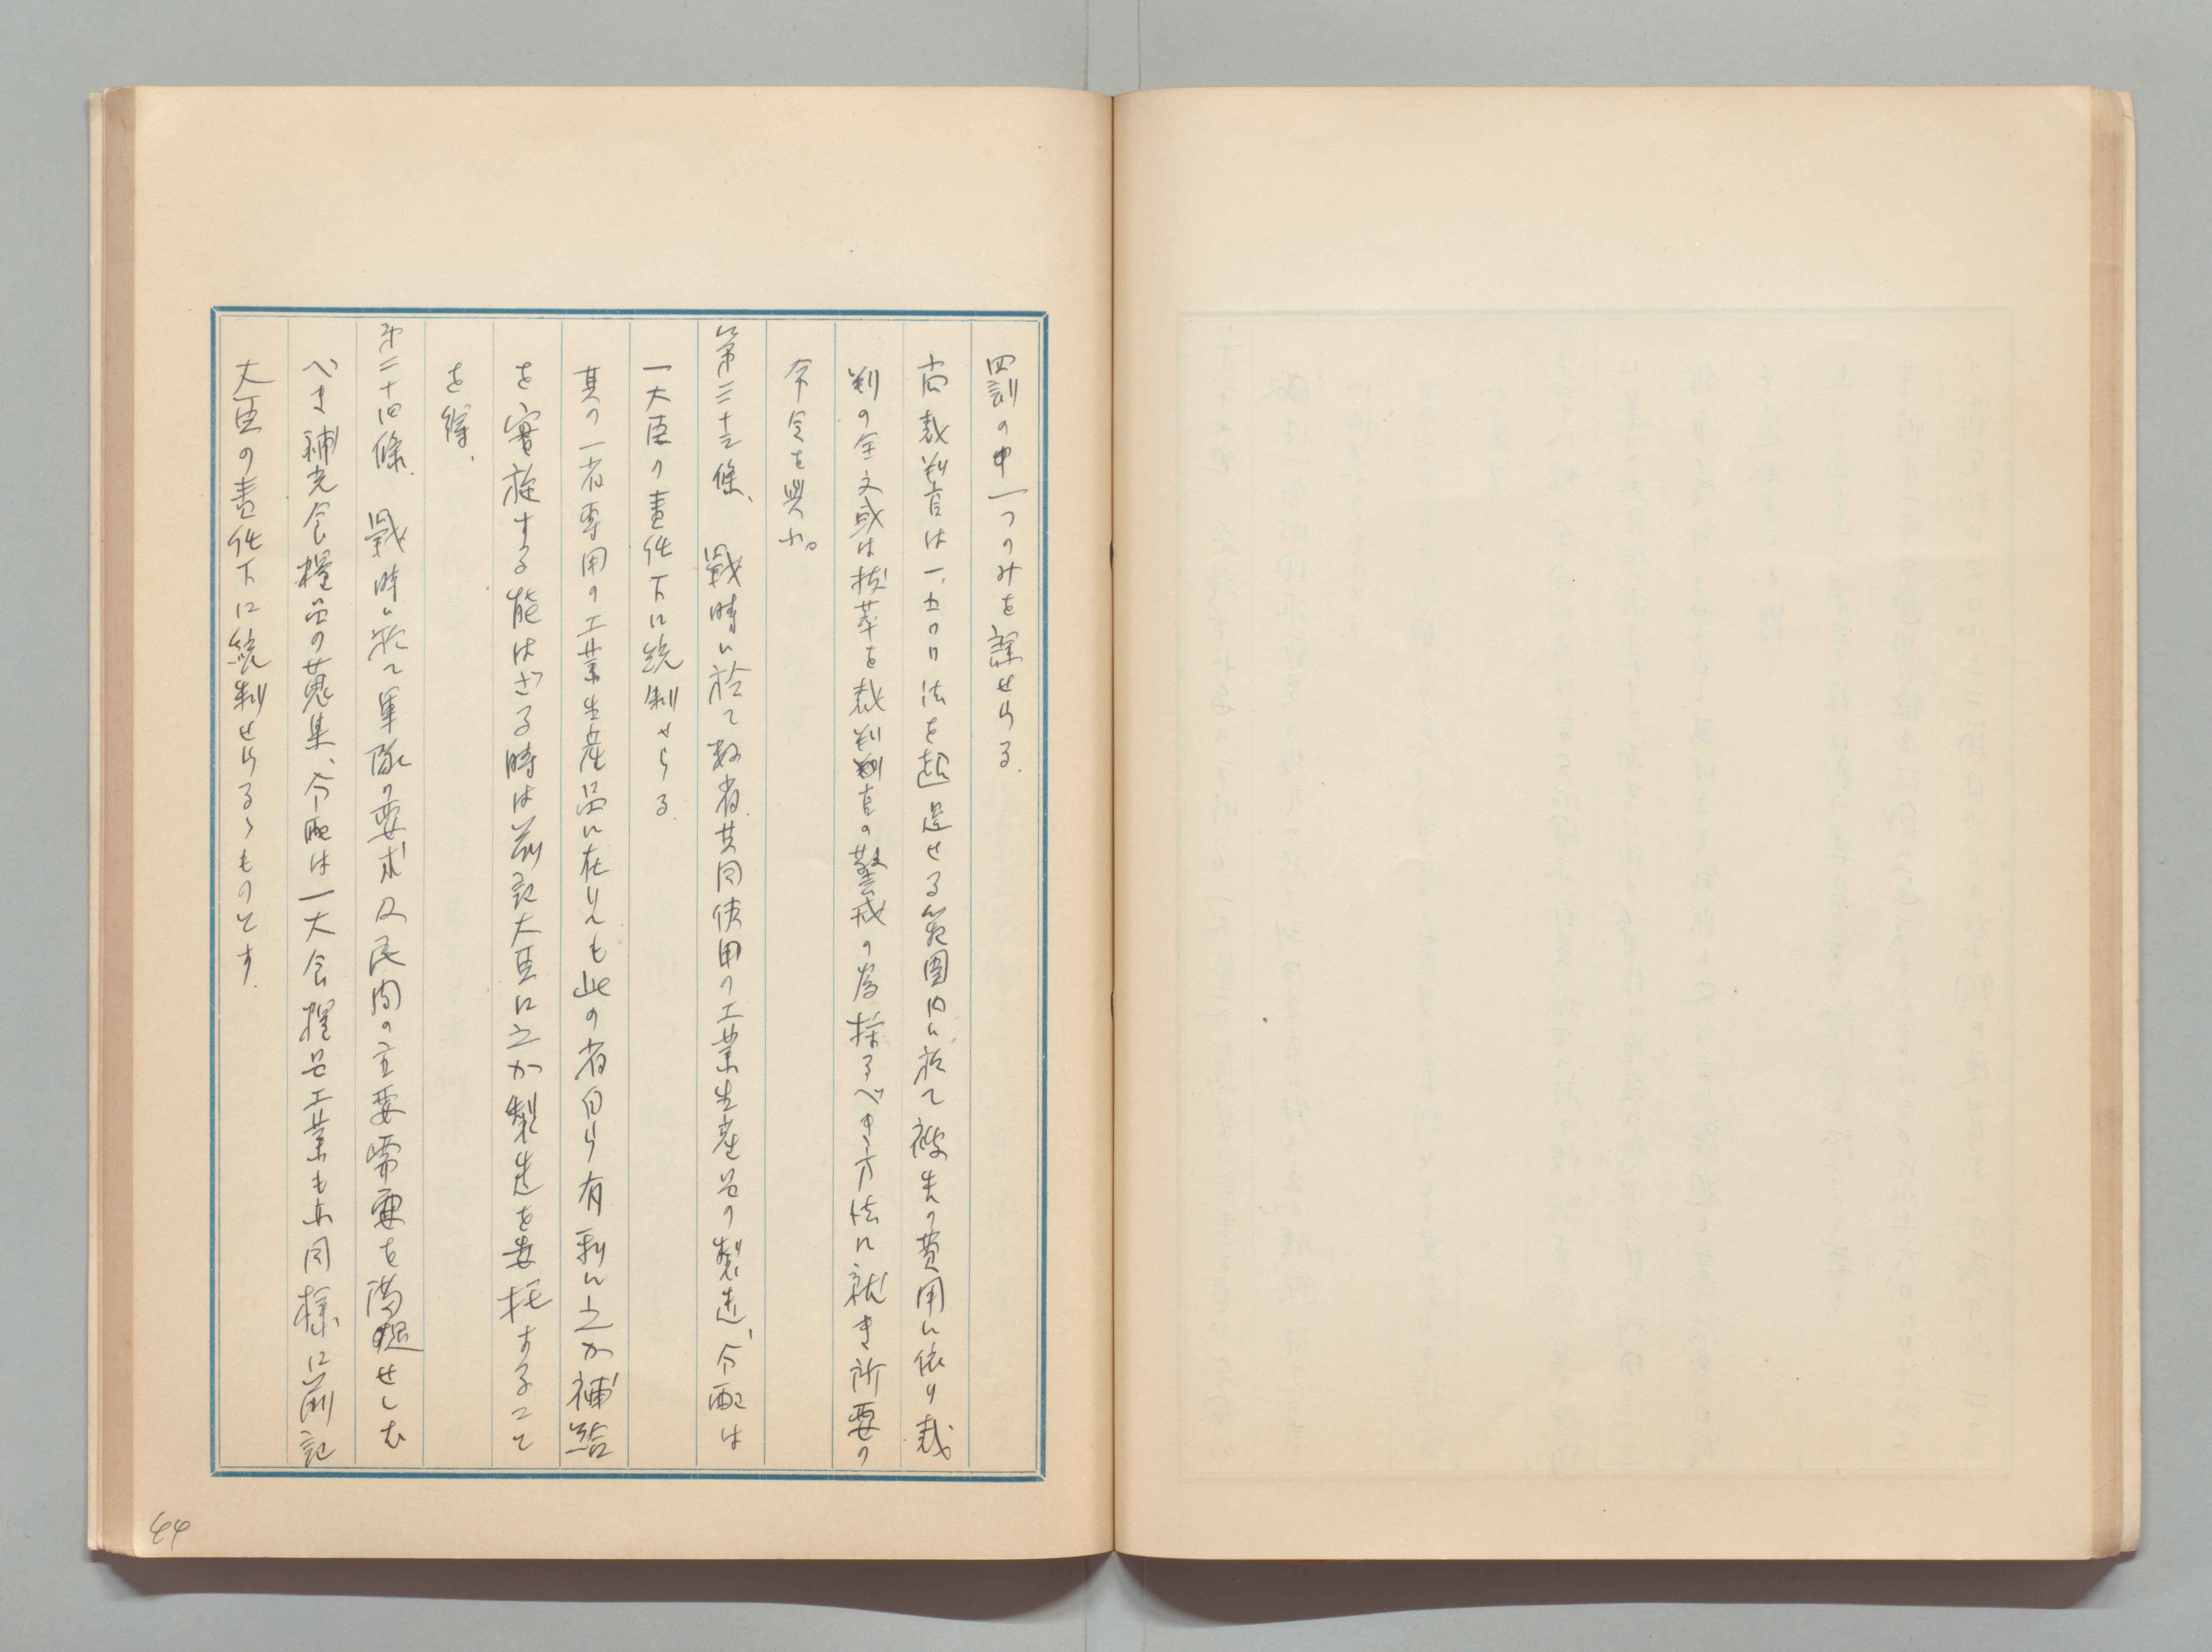 四罰の中一つのみを課せらる.
尚裁判官は一、五〇〇法を超過せる範圍内に於て被告の費用に依り裁
判の全文或は拔萃を裁判官の警戒の爲採るべき方法に就き所要の
命令を與ふ。
第二十三條、 戰時に於て数省共同使用の工業生産品の製造、分配は
一大臣の責任下に統制せらる.
其の一省専用の工業生産品に在りても此の省自ら有利に之が補給
を實施する能はざる時は前記大臣に之が製造を委托すること
を得、
第二十四條. 戰時に於て軍隊の要求及民間の主要需要を満足せしむ
べき補充食糧品の蒐集、分配は一大食糧品工業も亦同様に前記
大臣の責任下に統制せらるゝものとす.
44